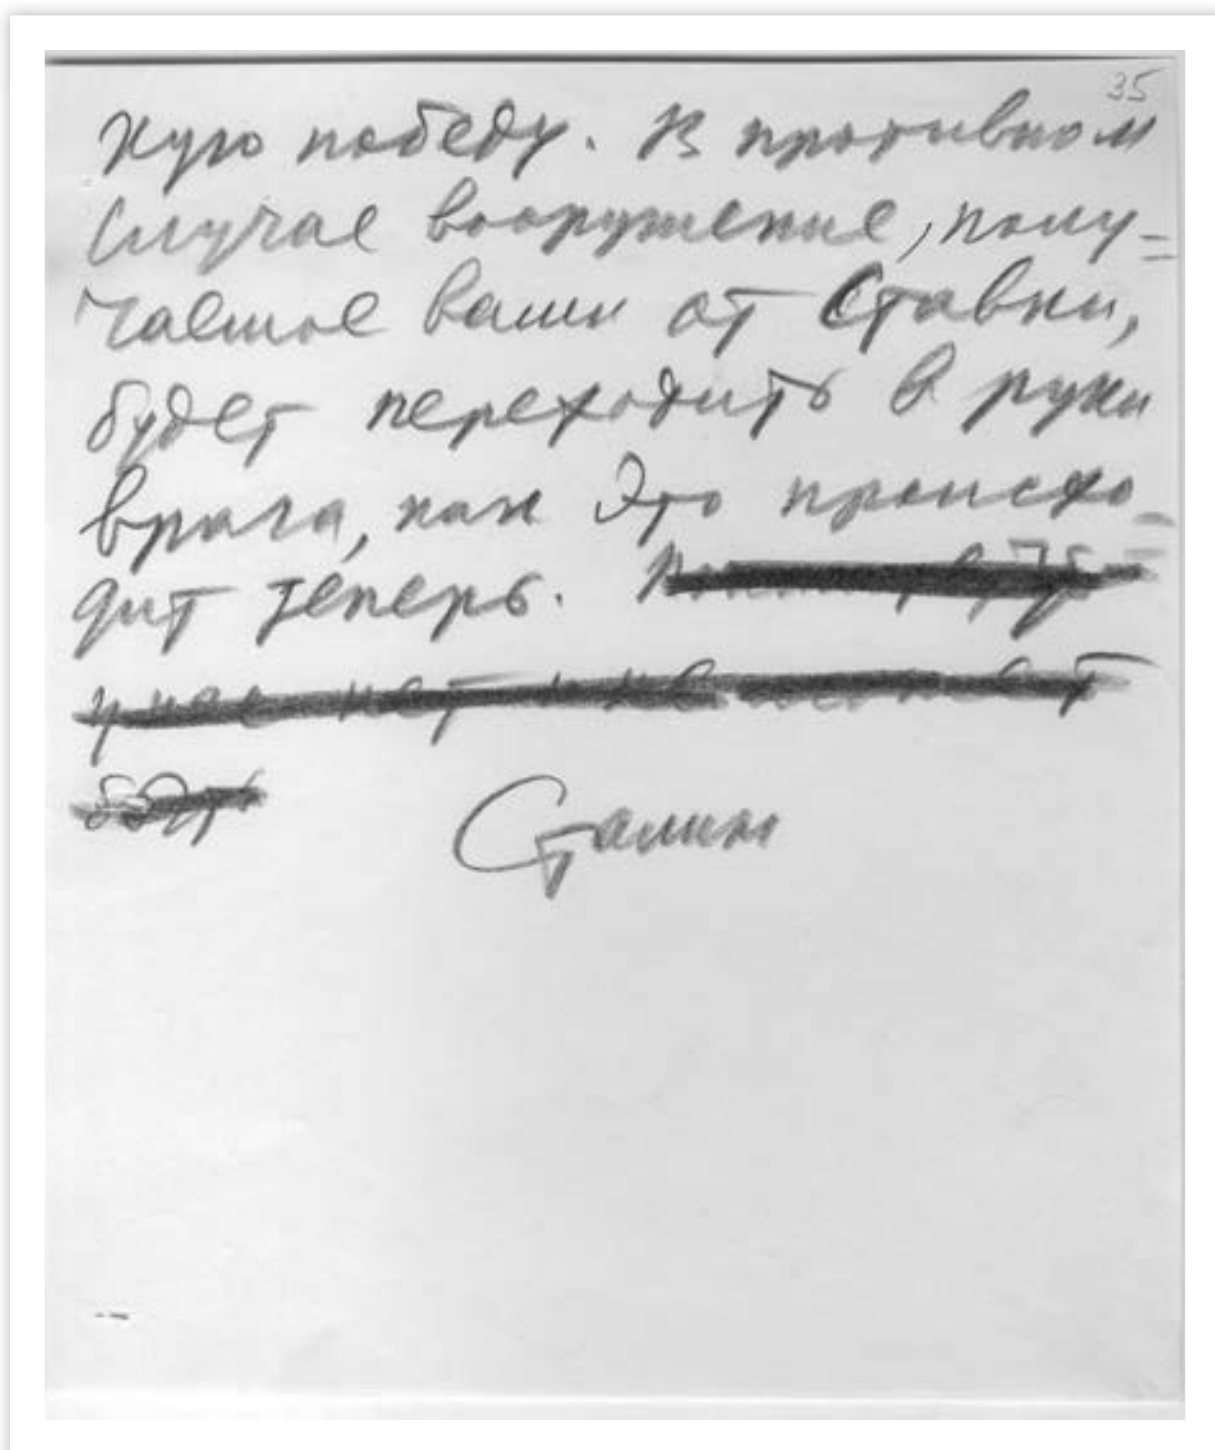 35
кую победу. В противном
случае вооружение, полу=
чаемое вами от Ставки,
будет переходить в руки
врага, как это происхо=
дит теперь.
у нас нет и не может
быть
Сталин